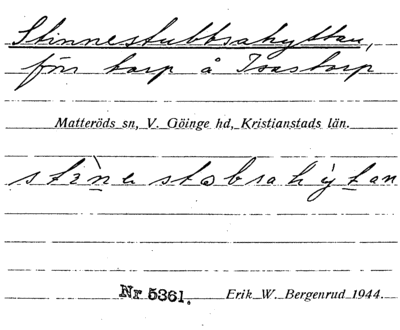 Stinnestubbsahyttan,
förr torp å Toastorp
Matteröds sn, V. Göinge hd, Kristianstads län.
Nr 5361. Erik W. Bergenrud 1944.